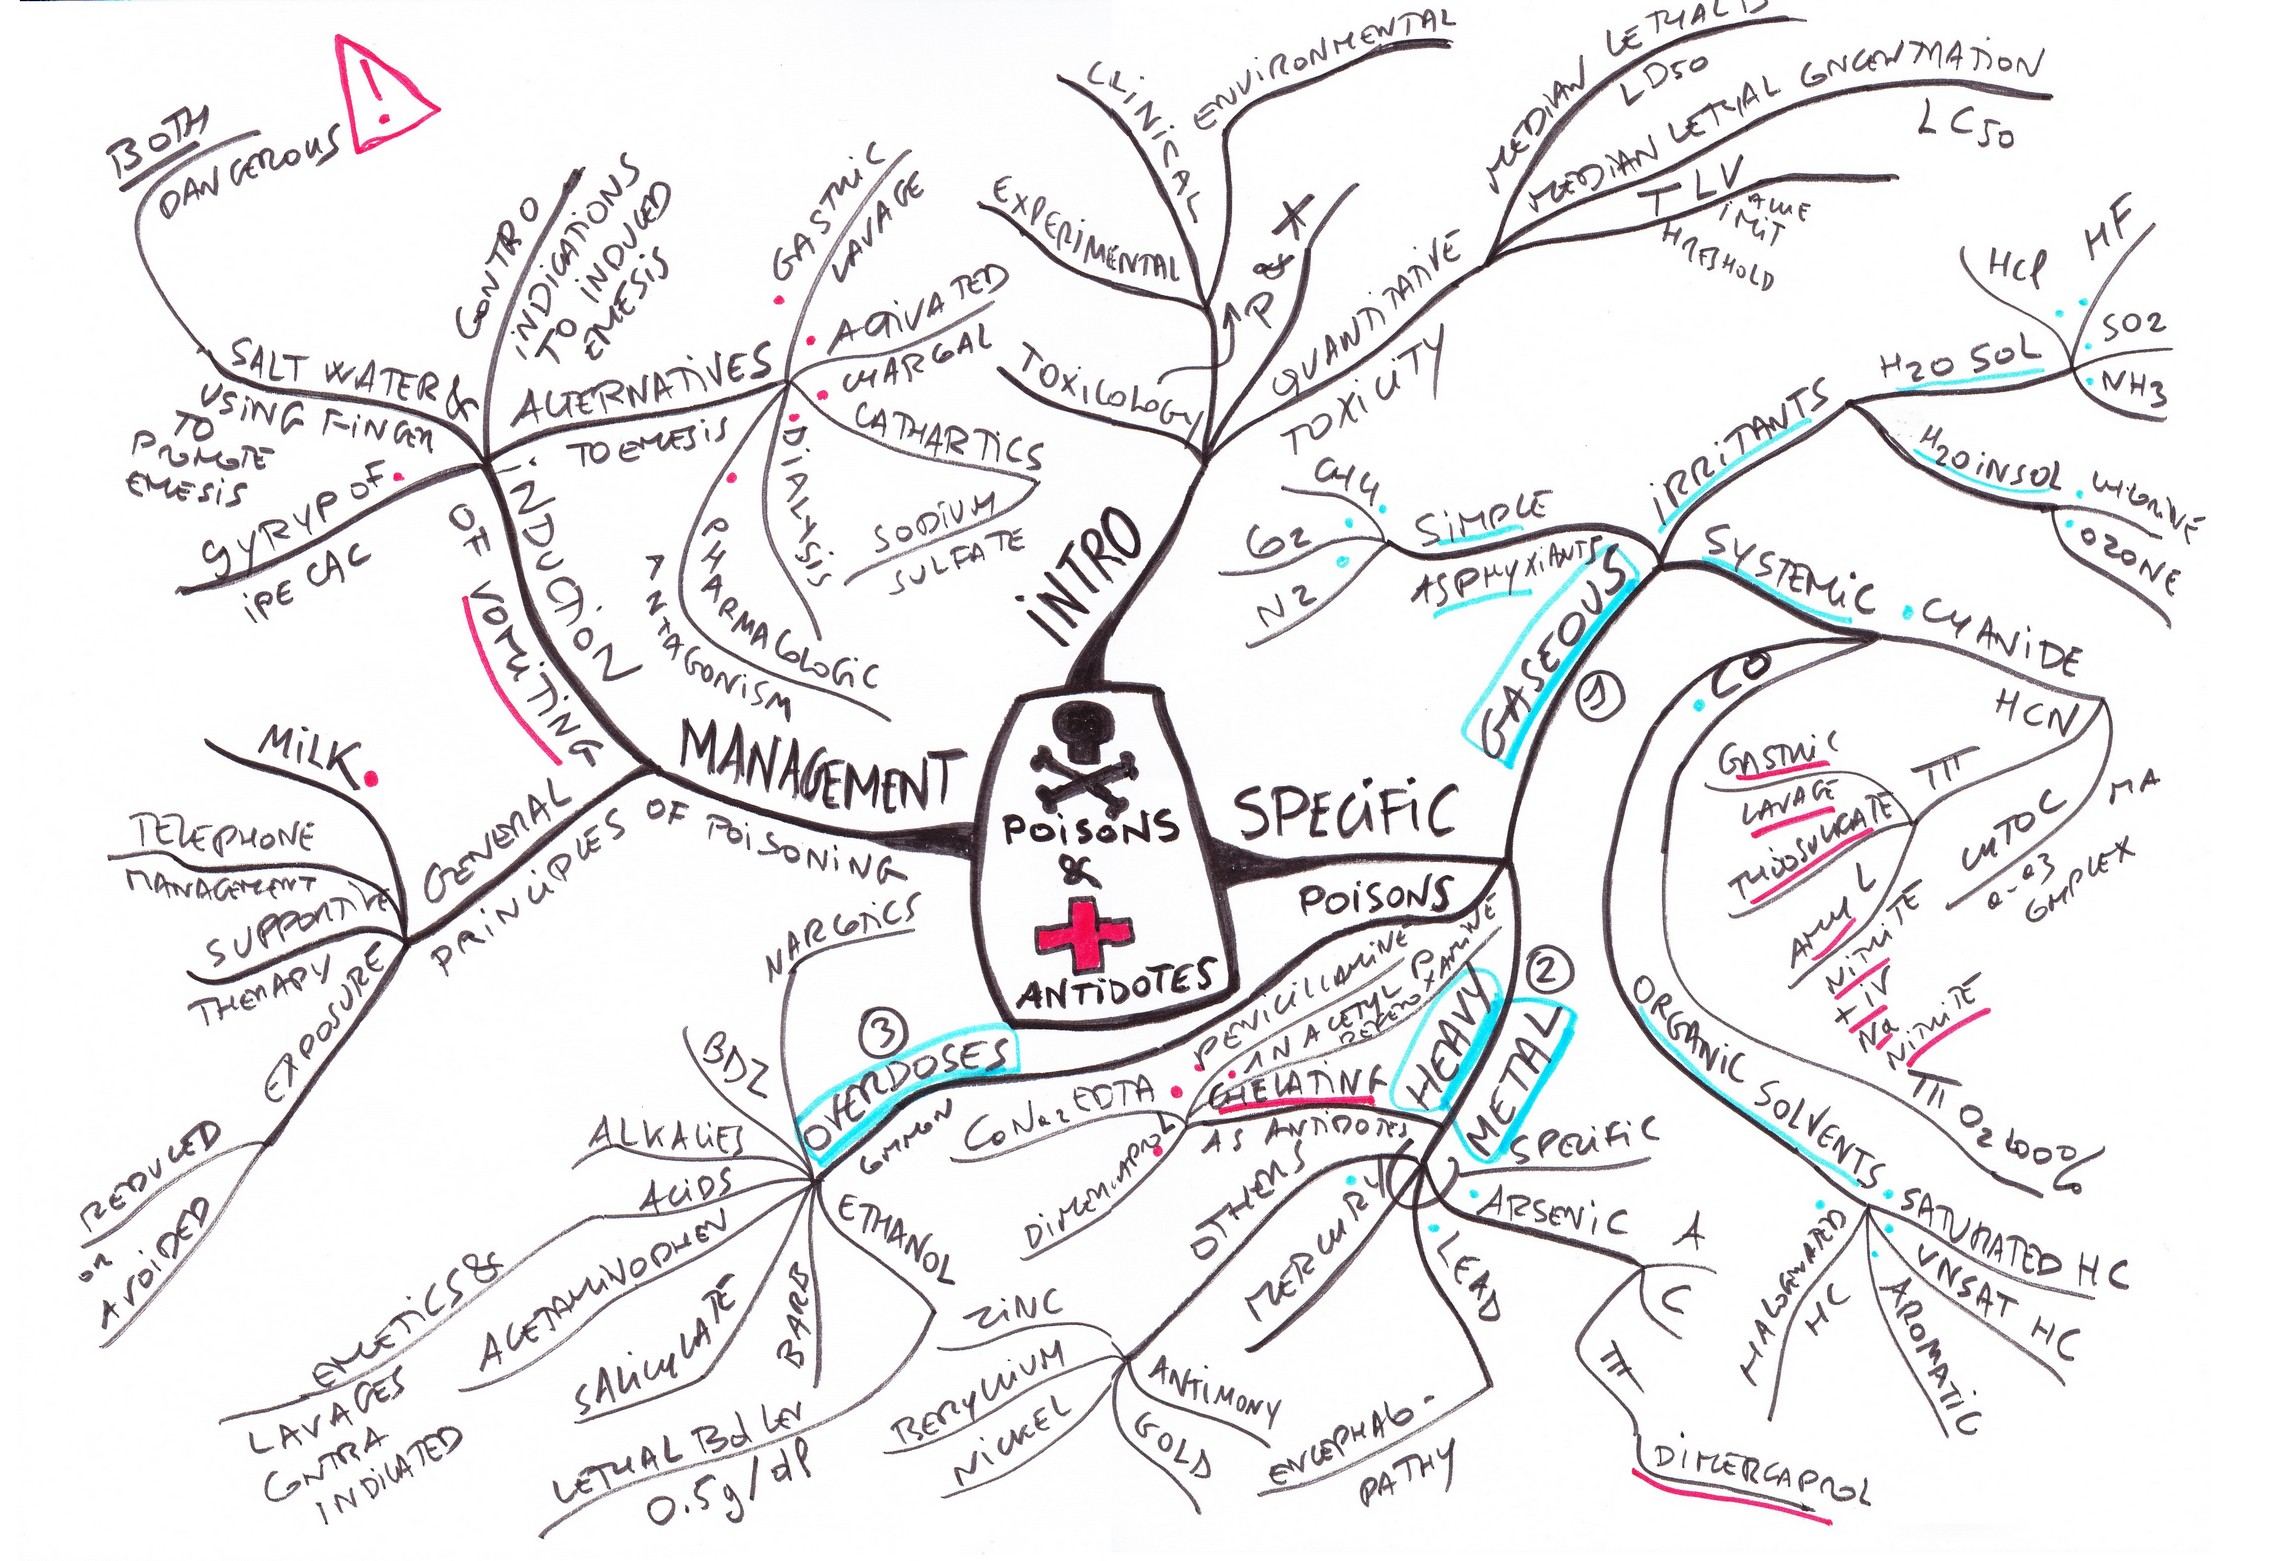 POISONS
&
ANTIDOTES
INTRO
TOXICOLOGY
EXPERIMENTAL
CLINICAL
ENVIRONMENTAL
QUANTITATIVE
TOXICITY
MEDIAN LETHAL
LD50
MEDIAN LETHAL CONCENTRATION
LC50
TLV
ALUE
IMIT
HRESHOLD
SPECIFIC
POISONS
1
GASEOUS
SIMPLE
ASPHYXIANTS
CH4
CO2
N2
IRRITANTS
H2O SOL
HCl
HF
SO2
NH3
H2O INSOL
CHLORINE
OZONE
SYSTEMIC
CYANIDE
HCN
MA
CYTOC
a-a3
COMPLEX
TTT
GASTRIC
LAVAGE
THIOSULFATE
AMYL
NITRITE
+ IV
Na
NITRITE
CO
TTT O2 100%
ORGANIC SOLVENTS
SATURATED HC
UNSAT HC
AROMATIC
HALOGENATED
HC
2
HEAVY
METAL
CHELATING
AS ANTIDOTES
PENICILLAMINE
N ACETYL P
DEFEROXAMINE
CaNa2 EDTA
DIMERCAPROL
SPECIFIC
ARSENIC
A
C
TTT
DIMERCAPROL
LEAD
ENCEPHALO-
PATHY
MERCURY
OTHERS
ZINC
BERYLLIUM
NICKEL
ANTIMONY
GOLD
3
OVERDOSES
COMMON
NARCOTICS
BDZ
ALKALIES
ACIDS
EMETICS &
LAVAGES
CONTRA
INDICATED
ACETAMINOPHEN
SALICYLATE
BARB
ETHANOL
LETHAL Bd Lev
0.5g/dl
MANAGEMENT
OF POISONING
GENERAL
PRINCIPLES
MILK
TELEPHONE
MANAGEMENT
SUPPORTIVE
THERAPY
EXPOSURE
REDUCED
OR
AVOIDED
INDUCTION
OF VOMITING
SYRYP OF
IPECAC
SALT WATER &
USING FINGER
TO
PROMOTE
EMESIS
BOTH
DANGEROUS
!
CONTRO
INDICATIONS
TO INDUCED
EMESIS
ALTERNATIVES
TO EMESIS
GASTRIC
LAVAGE
ACTIVATED
CHARCOAL
CATHARTICS
SODIUM
SULFATE
DIALYSIS
PHARMACOLOGIC
ANTAGONISM